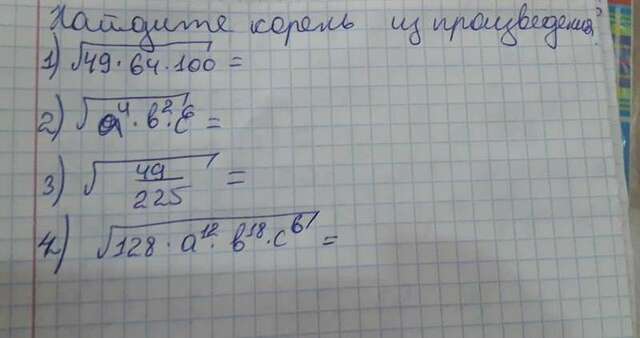 Найдите корень из произведения?
1) √49·64·100 =
2) √a⁴·b²·c⁶ =
3) √49/225 =
4) √128·a¹²·b¹⁸·c⁶ =